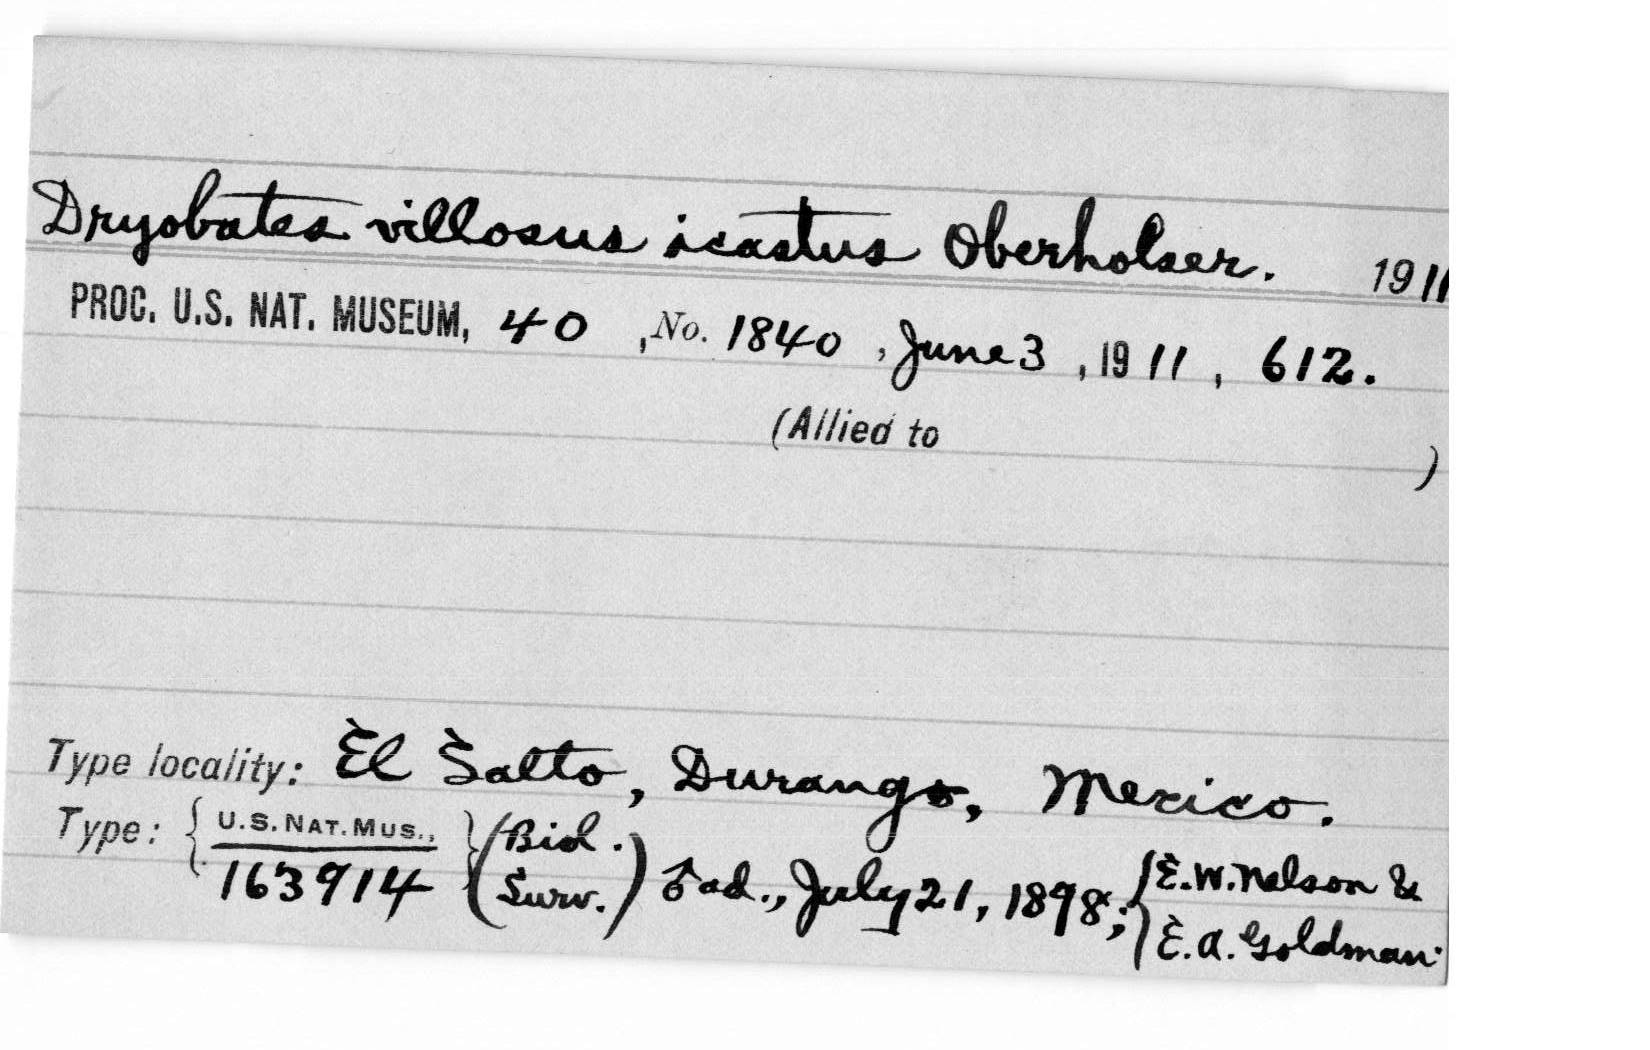 Dryobates villosus icastus Oberholser. 1911
PROC. U.S. NAT. MUSEUM, 40, No. 1840, June 3, 1911, 612.
(Allied to )
Type locality: El Salto, Durango, Mexico.
Type: { U.S. NAT. MUS., } (Biol. Surv.) ♂ ad., July 21, 1898; { E. W. Nelson &
163914 E. A. Goldman.